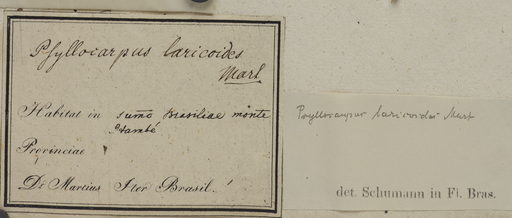 Psyllocarpus laricoides
Mart.
Habitat in summo Brasiliae monte
Itambé
Provinciae
Dr Martius Iter Brasil.
Psyllocarpus laricoides Mart
det. Schumann in Fl. Bras.